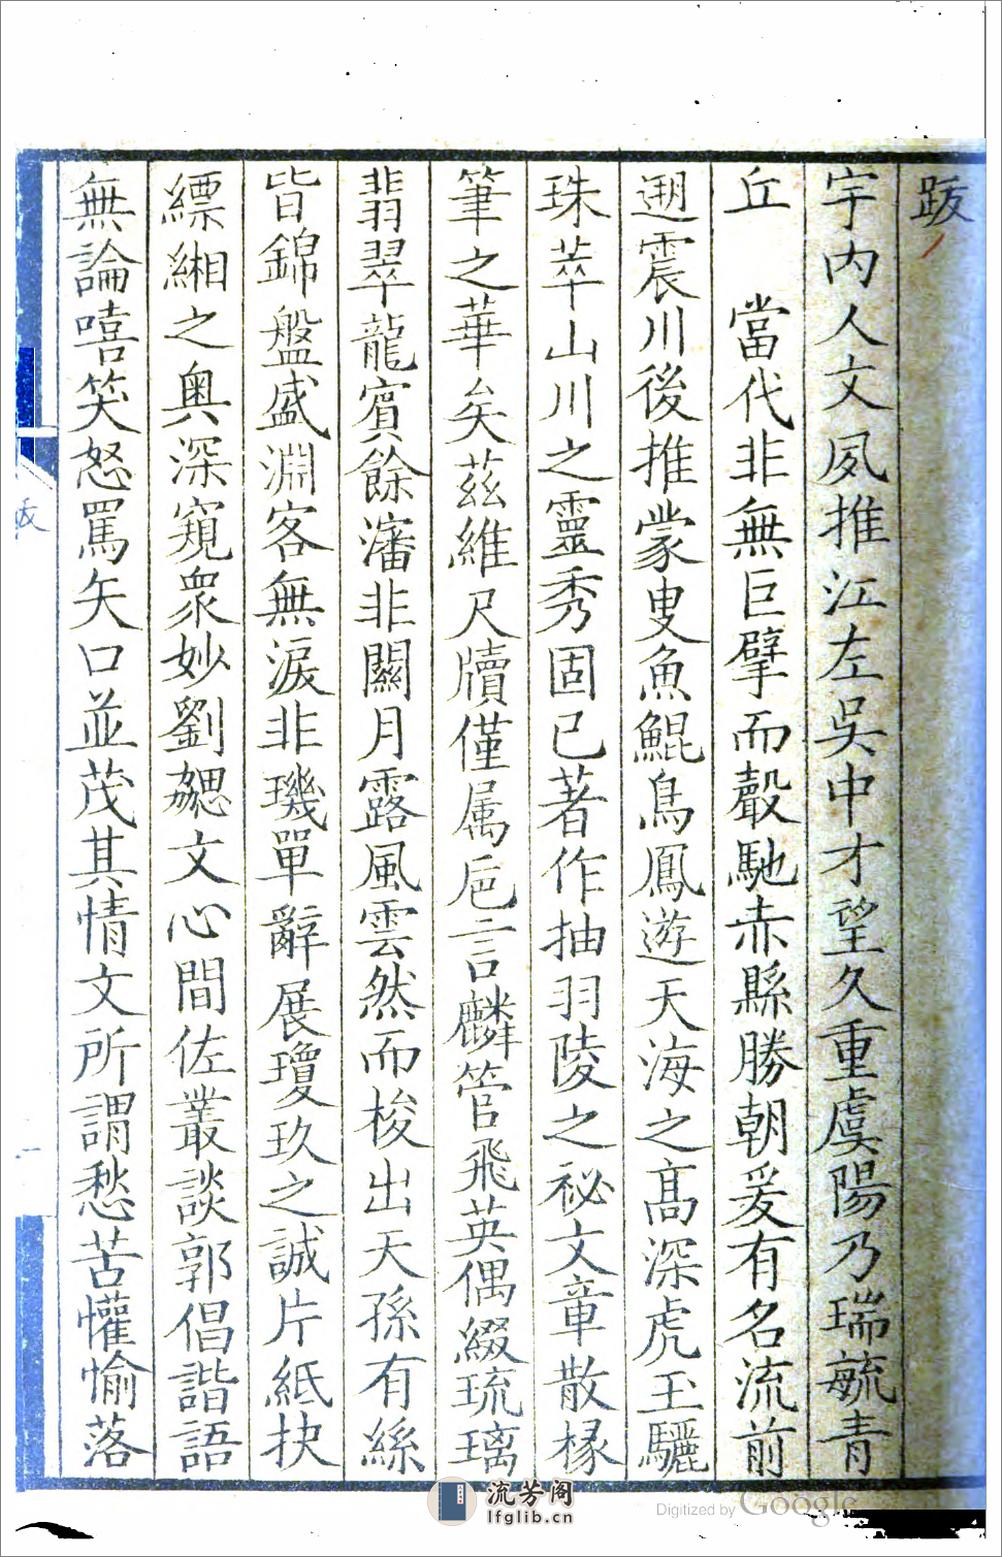 跋
宇内人文夙推江左吳中才望久重虞陽乃瑞毓青
丘 當代非無巨擘而聲馳赤縣勝朝爰有名流前
遡震川後推蒙叟魚鯤鳥鳳遊天海之髙深虎玉驪
珠萃山川之靈秀固已著作抽羽陵之祕文章散椽
筆之華矣茲維尺牘僅属巵言麟管飛英偶綴琉璃
翡翠龍賓餘瀋非關月露風雲然而梭出天孫有絲
皆錦盤盛淵客無淚非璣單辭展瓊玖之誠片紙抉
縹緗之奥深窺衆妙劉勰文心間佐叢談郭倡諧語
無論嘻笑怒罵矢口並茂其情文所謂愁苦懽愉落
跋
一
流芳阁
lfglib.cn
Digitized by Google